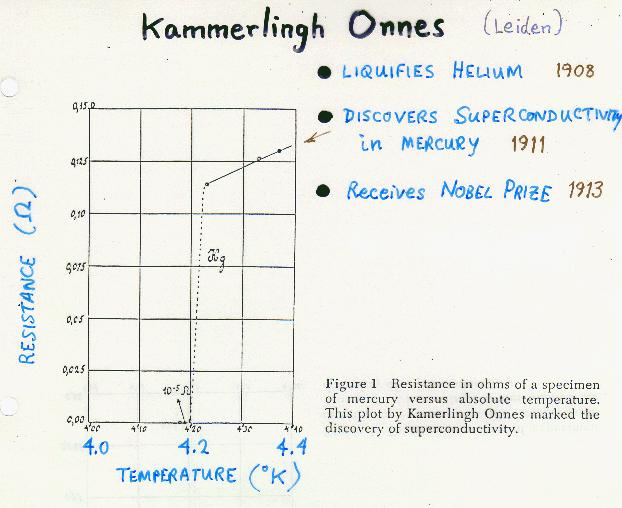 Kammerlingh Onnes (Leiden)
● LIQUIFIES HELIUM 1908
● DISCOVERS SUPERCONDUCTIVITY
in MERCURY 1911
● Receives NOBEL PRIZE 1913
RESISTANCE (Ω)
0,15.0
0,125
0,10
0,075
0,05
0,025
0,00
Hg
10⁻⁵ Ω
4˙00 4˙10 4˙20 4˙30 4˙40
4.0 4.2 4.4
TEMPERATURE (°K)
Figure 1 Resistance in ohms of a specimen
of mercury versus absolute temperature.
This plot by Kamerlingh Onnes marked the
discovery of superconductivity.